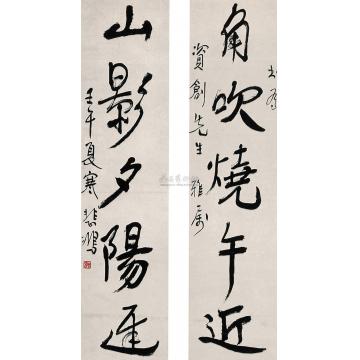 角吹燒午近
書為
資創先生雅屬
山影夕陽遲
壬午夏寒
悲鴻